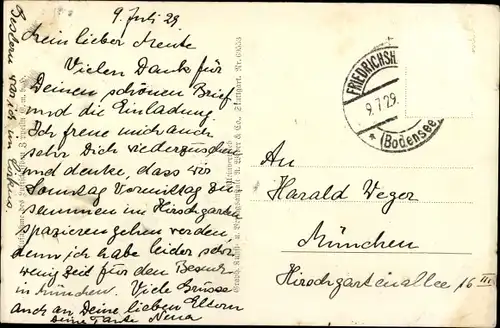 9. Juli 29
Mein lieber
Vielen Dank für
Deinen schönen Brief
und die Einladung
Ich freue mich auch
sehr Dich wiederzusehen
und denke, dass wir
Sonntag Vormittag zu
sammen im Hirschgarten
spazieren gehen werden,
denn ich habe leider sehr
wenig Zeit für den Besuch
in München. Viele Grüsse
auch an Deine lieben Eltern
Deine Tante Nena
Gestern war ich im Zirkus.
FRIEDRICHSH
9.7.29.
* (Bodensee)
An
Harald Weger
München
Hirschgartenallee 16 III